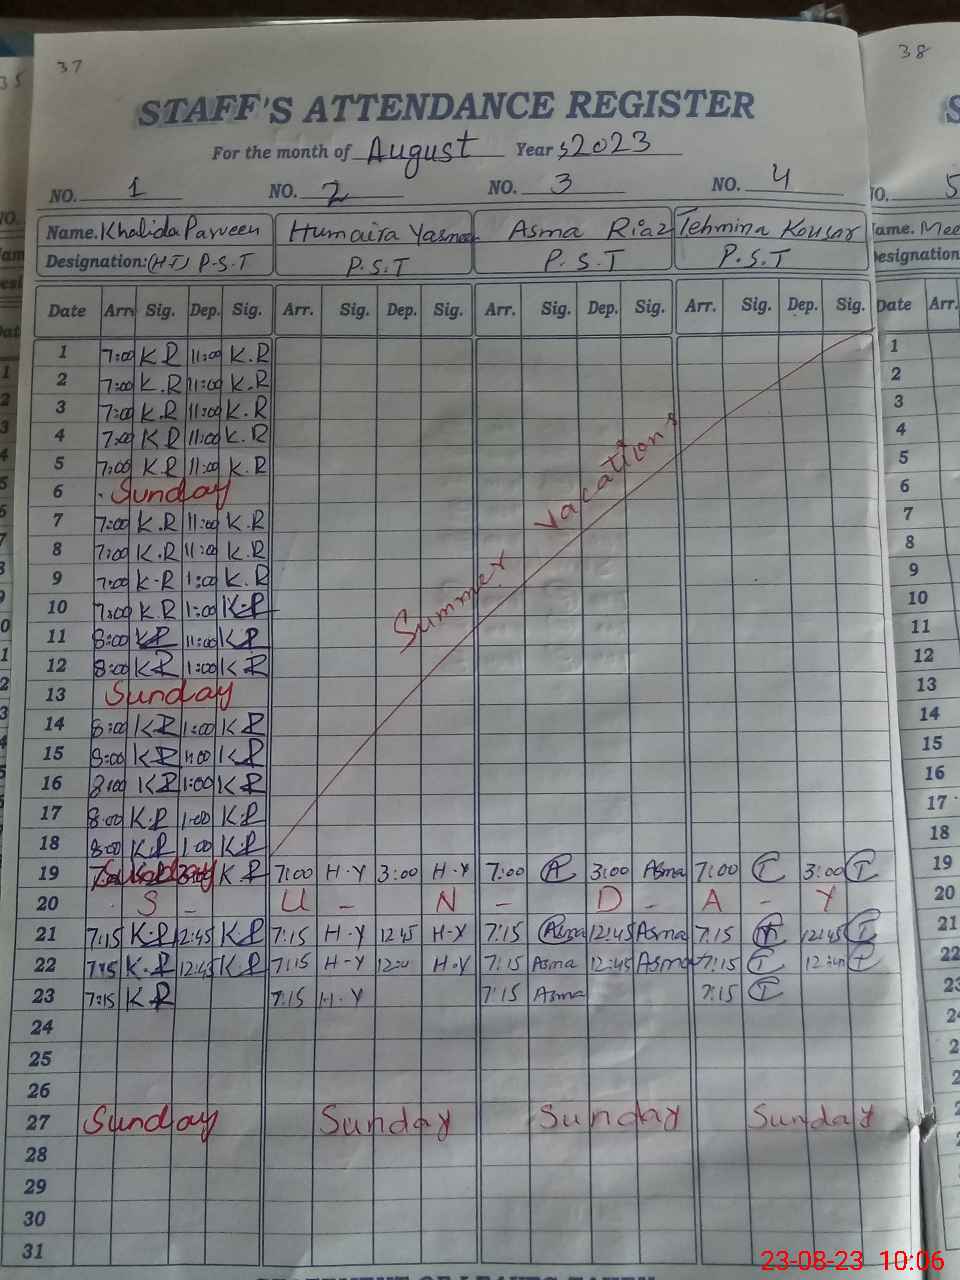 37
38
35
STAFF'S ATTENDANCE REGISTER
For the month of August Year 2023
NO. 1 NO. 2 NO. 3 NO. 4 NO. 5
Name. Khalida Parveen Humaira Yasmeen Asma Riaz Tehmina Kousar Name. Mee
Designation: (HT) P.S.T P.S.T P.S.T P.S.T Designation
Date Arr. Sig. Dep. Sig. Arr. Sig. Dep. Sig. Arr. Sig. Dep. Sig. Arr. Sig. Dep. Sig. Date Arr.
1 7:00 K.R 11:00 K.R 1
2 7:00 K.R 11:00 K.R 2
3 7:00 K.R 11:00 K.R 3
4 7:00 K.R 11:00 K.R 4
5 7:00 K.R 11:00 K.R 5
6 Sunday 6
7 7:00 K.R 11:00 K.R 7
8 7:00 K.R 11:00 K.R 8
9 7:00 K.R 1:00 K.R 9
10 7:00 K.R 1:00 K.R 10
11 8:00 K.R 11:00 K.R 11
12 8:00 K.R 1:00 K.R 12
13 Sunday 13
14 8:00 K.R 1:00 K.R 14
15 8:00 K.R 1:00 K.R 15
16 8:00 K.R 1:00 K.R 16
17 8:00 K.R 1:00 K.R 17
18 8:00 K.R 1:00 K.R 18
Summer Vacations
19 Sunday K.R 7:00 H-Y 3:00 H-Y 7:00 A 3:00 Asma 7:00 T 3:00 T 19
20 S - U - N - D - A - Y 20
21 7:15 K.R 12:45 K.R 7:15 H-Y 12:45 H-Y 7:15 Asma 12:45 Asma 7:15 T 12:45 T 21
22 7:15 K.R 12:45 K.R 7:15 H-Y H-Y 7:15 Asma 12:45 Asma 7:15 T T 22
23 7:15 K.R 7:15 H-Y 7:15 Asma 7:15 T 23
24
25
26
27 Sunday Sunday Sunday Sunday
28
29
30
31
23-08-23 10:06